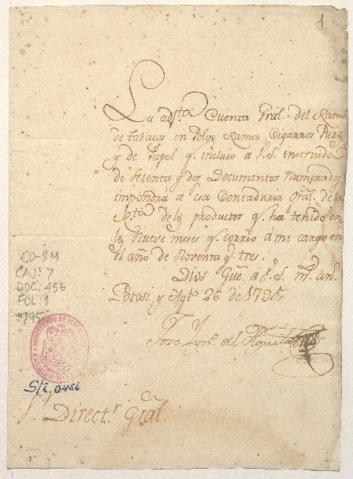 1
La adj.ta Cuenta Gral. del Ramo
de tabaco en Polvo Rama Cigarros Puros
y de Papel q. incluio a V.S. instruida
de sesenta y dos Documentos Numerados
impondrá a esa Contaduria Gral. de la
de los productos q. ha tenido en
los Nueve meses q. corrio á mi cargo en
el año de Noventa y tres.
Dios gue. a V.S. m.s an.s
Potosi y Agto. 26 de 1795
CO-SM
CAJ: 7
DOC: 456
FOL: 1
1795
S/c, 0456
Direct.r Gral.